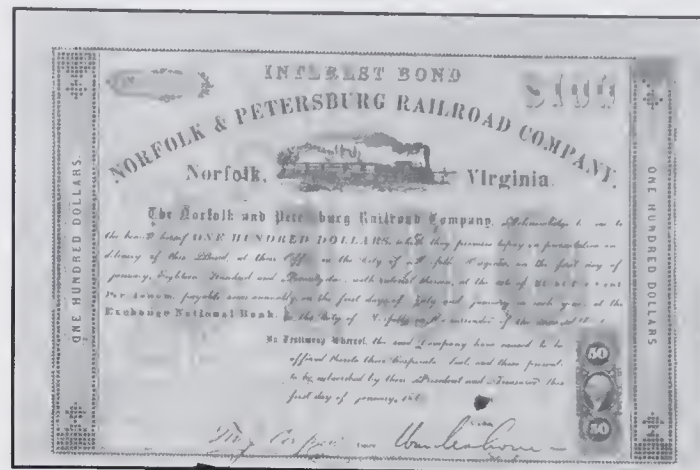 INTEREST BOND
$100
NORFOLK & PETERSBURG RAILROAD COMPANY.
Norfolk, Virginia.
ONE HUNDRED DOLLARS.
ONE HUNDRED DOLLARS
The Norfolk and Petersburg Railroad Company, Acknowledge to owe to
the bearer hereof ONE HUNDRED DOLLARS, which they promise to pay on presentation and
delivery of this Bond, at their Office in the City of Norfolk, Virginia, on the first day of
january, Eighteen Hundred and with interest thereon, at the rate of
Per Annum, payable semi annually, on the first days of July and january in each year, at the
Exchange National Bank, in the City of Norfolk, on the surrender of the
In Testimony Whereof, the said Company have caused to be
affixed hereto their Corporate Seal, and these presents
to be subscribed by their President and Treasurer this
first day of january,
50
50